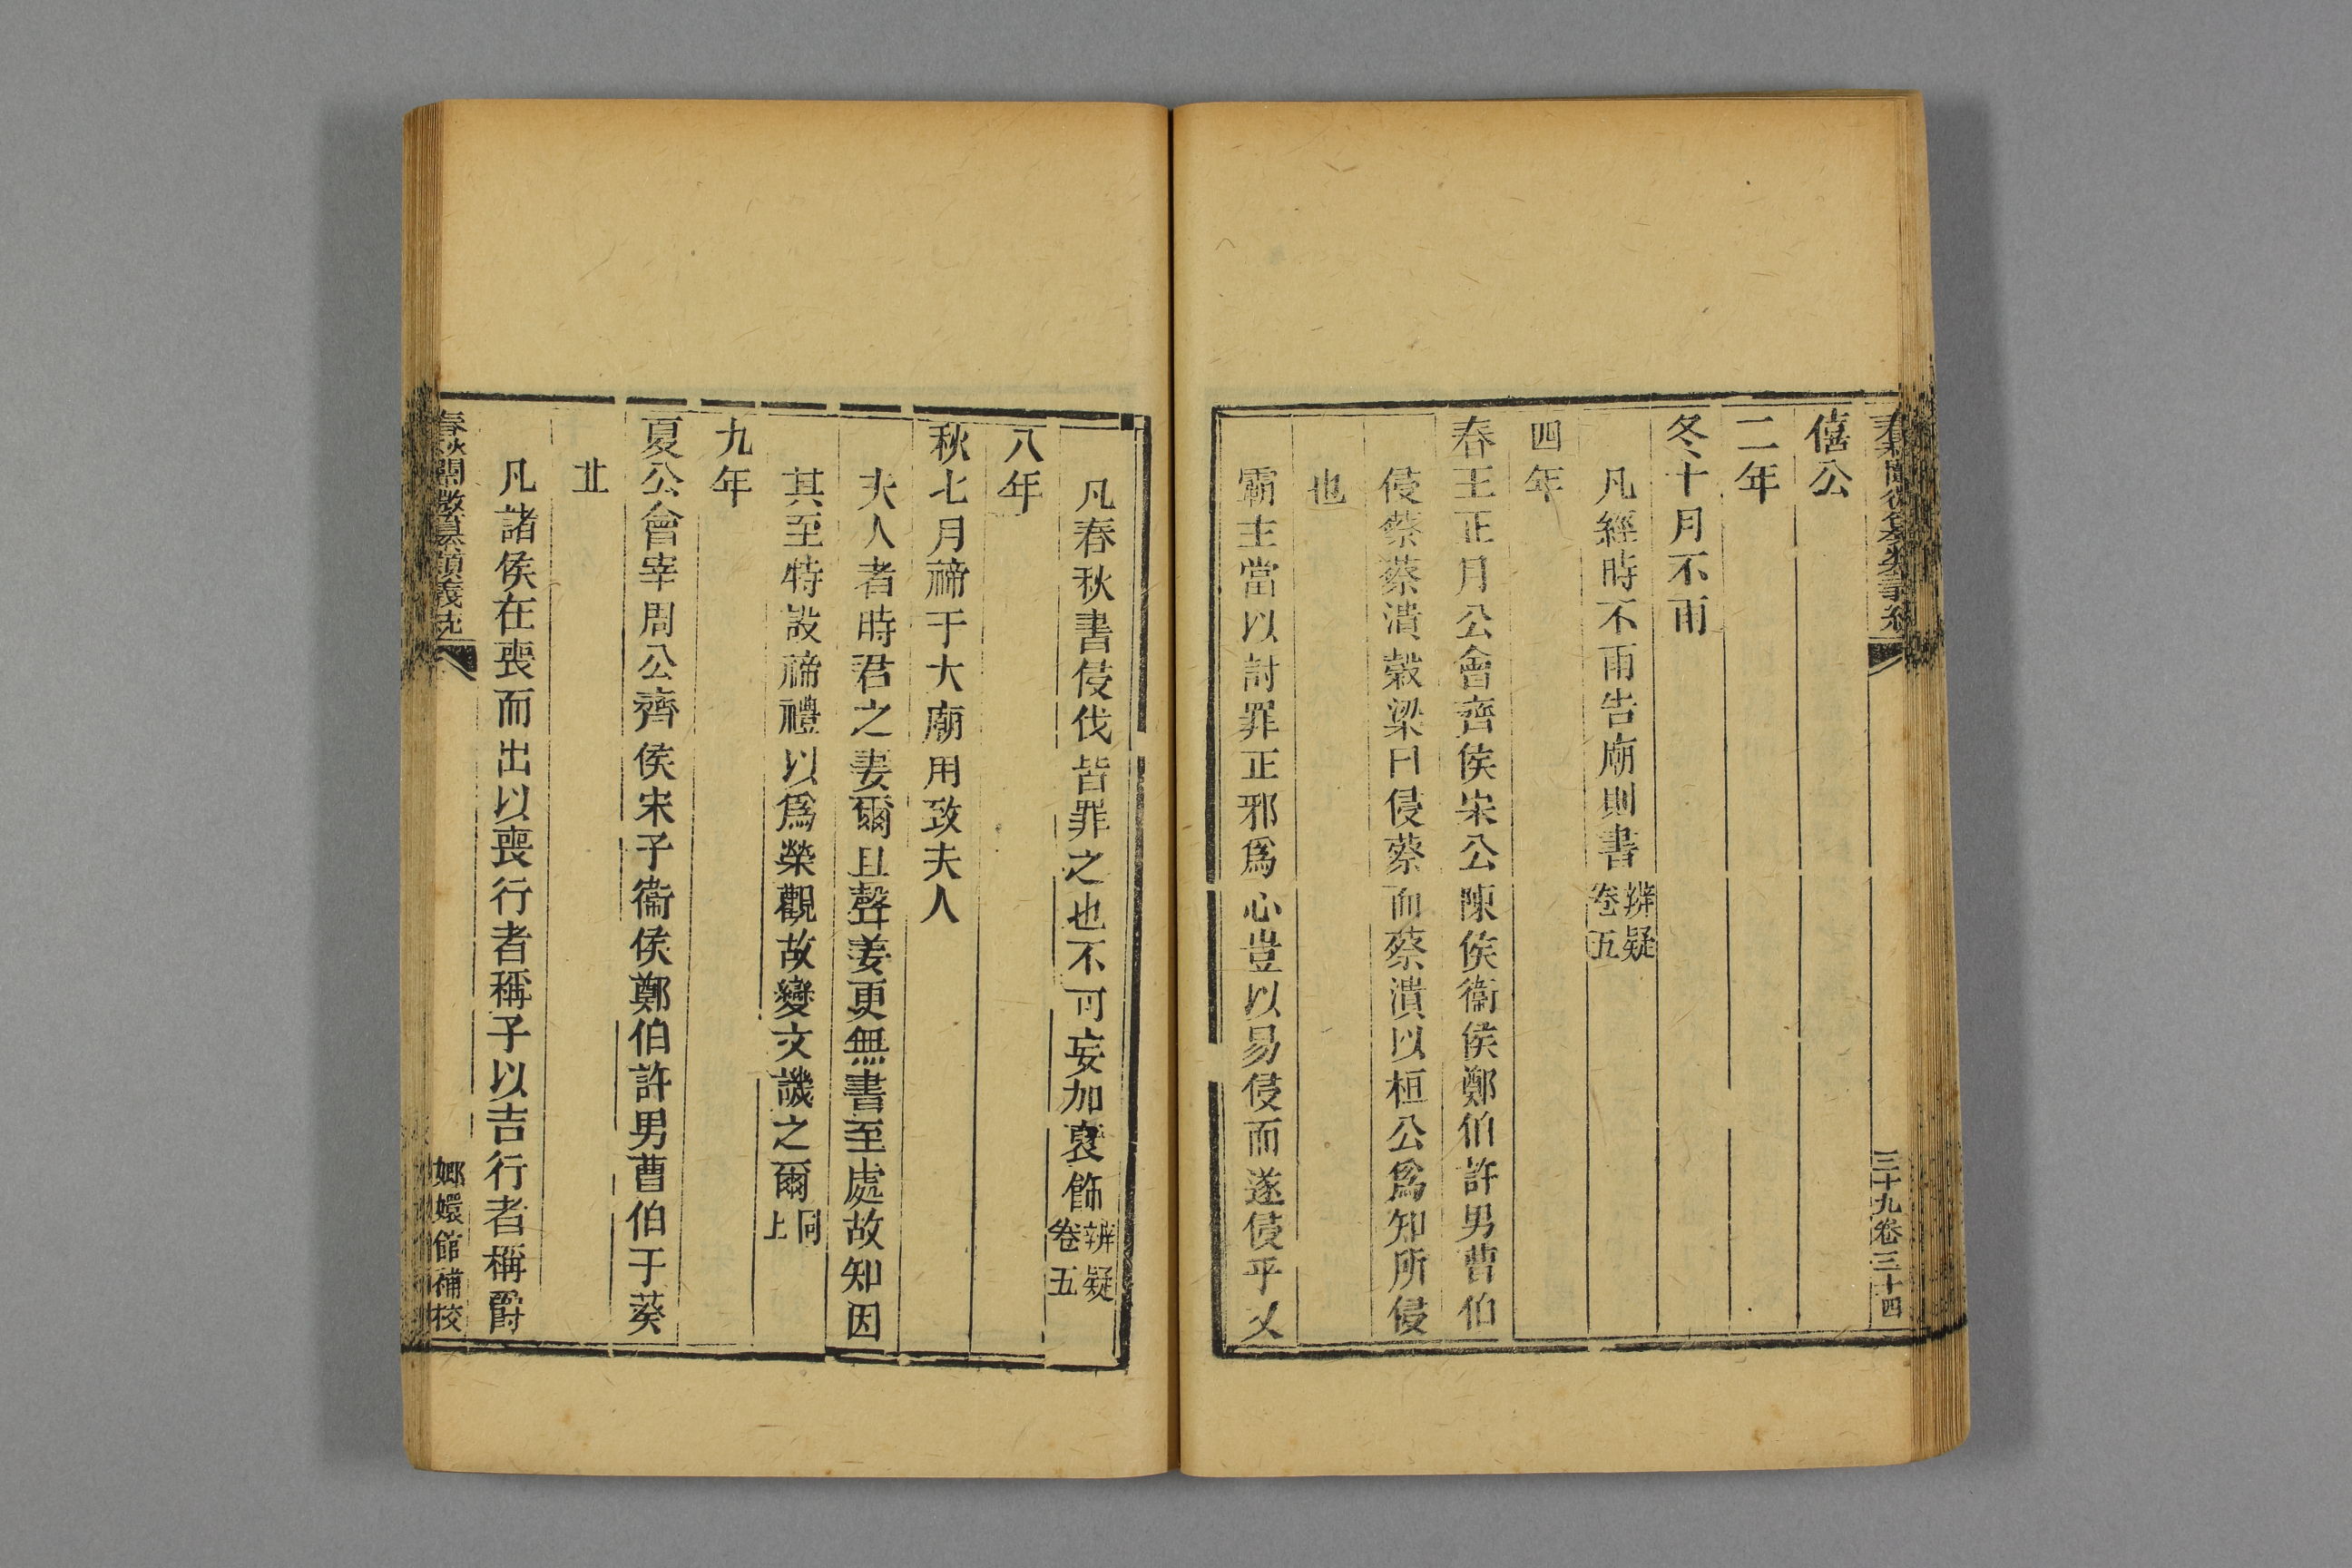 三十九卷三十四
僖公
二年
冬十月不雨
凡經時不雨告廟則書辨疑卷五
四年
春王正月公會齊侯宋公陳侯衞侯鄭伯許男曹伯
侵蔡蔡潰榖梁曰侵蔡而蔡潰以桓公爲知所侵
也
霸主當以討罪正邪爲心豈以易侵而遂侵乎又
凡春秋書侵伐皆罪之也不可妄加襃飾辨疑卷五
八年
秋七月禘于大廟用致夫人
夫人者時君之妻爾且聲姜更無書至處故知因
其至特設禘禮以爲榮觀故變文譏之爾同上
九年
夏公會宰周公齊侯宋子衞侯鄭伯許男曹伯于葵
丠
凡諸侯在喪而出以喪行者稱子以吉行者稱爵
春秋闡微纂類義統
嫏嬛館補校